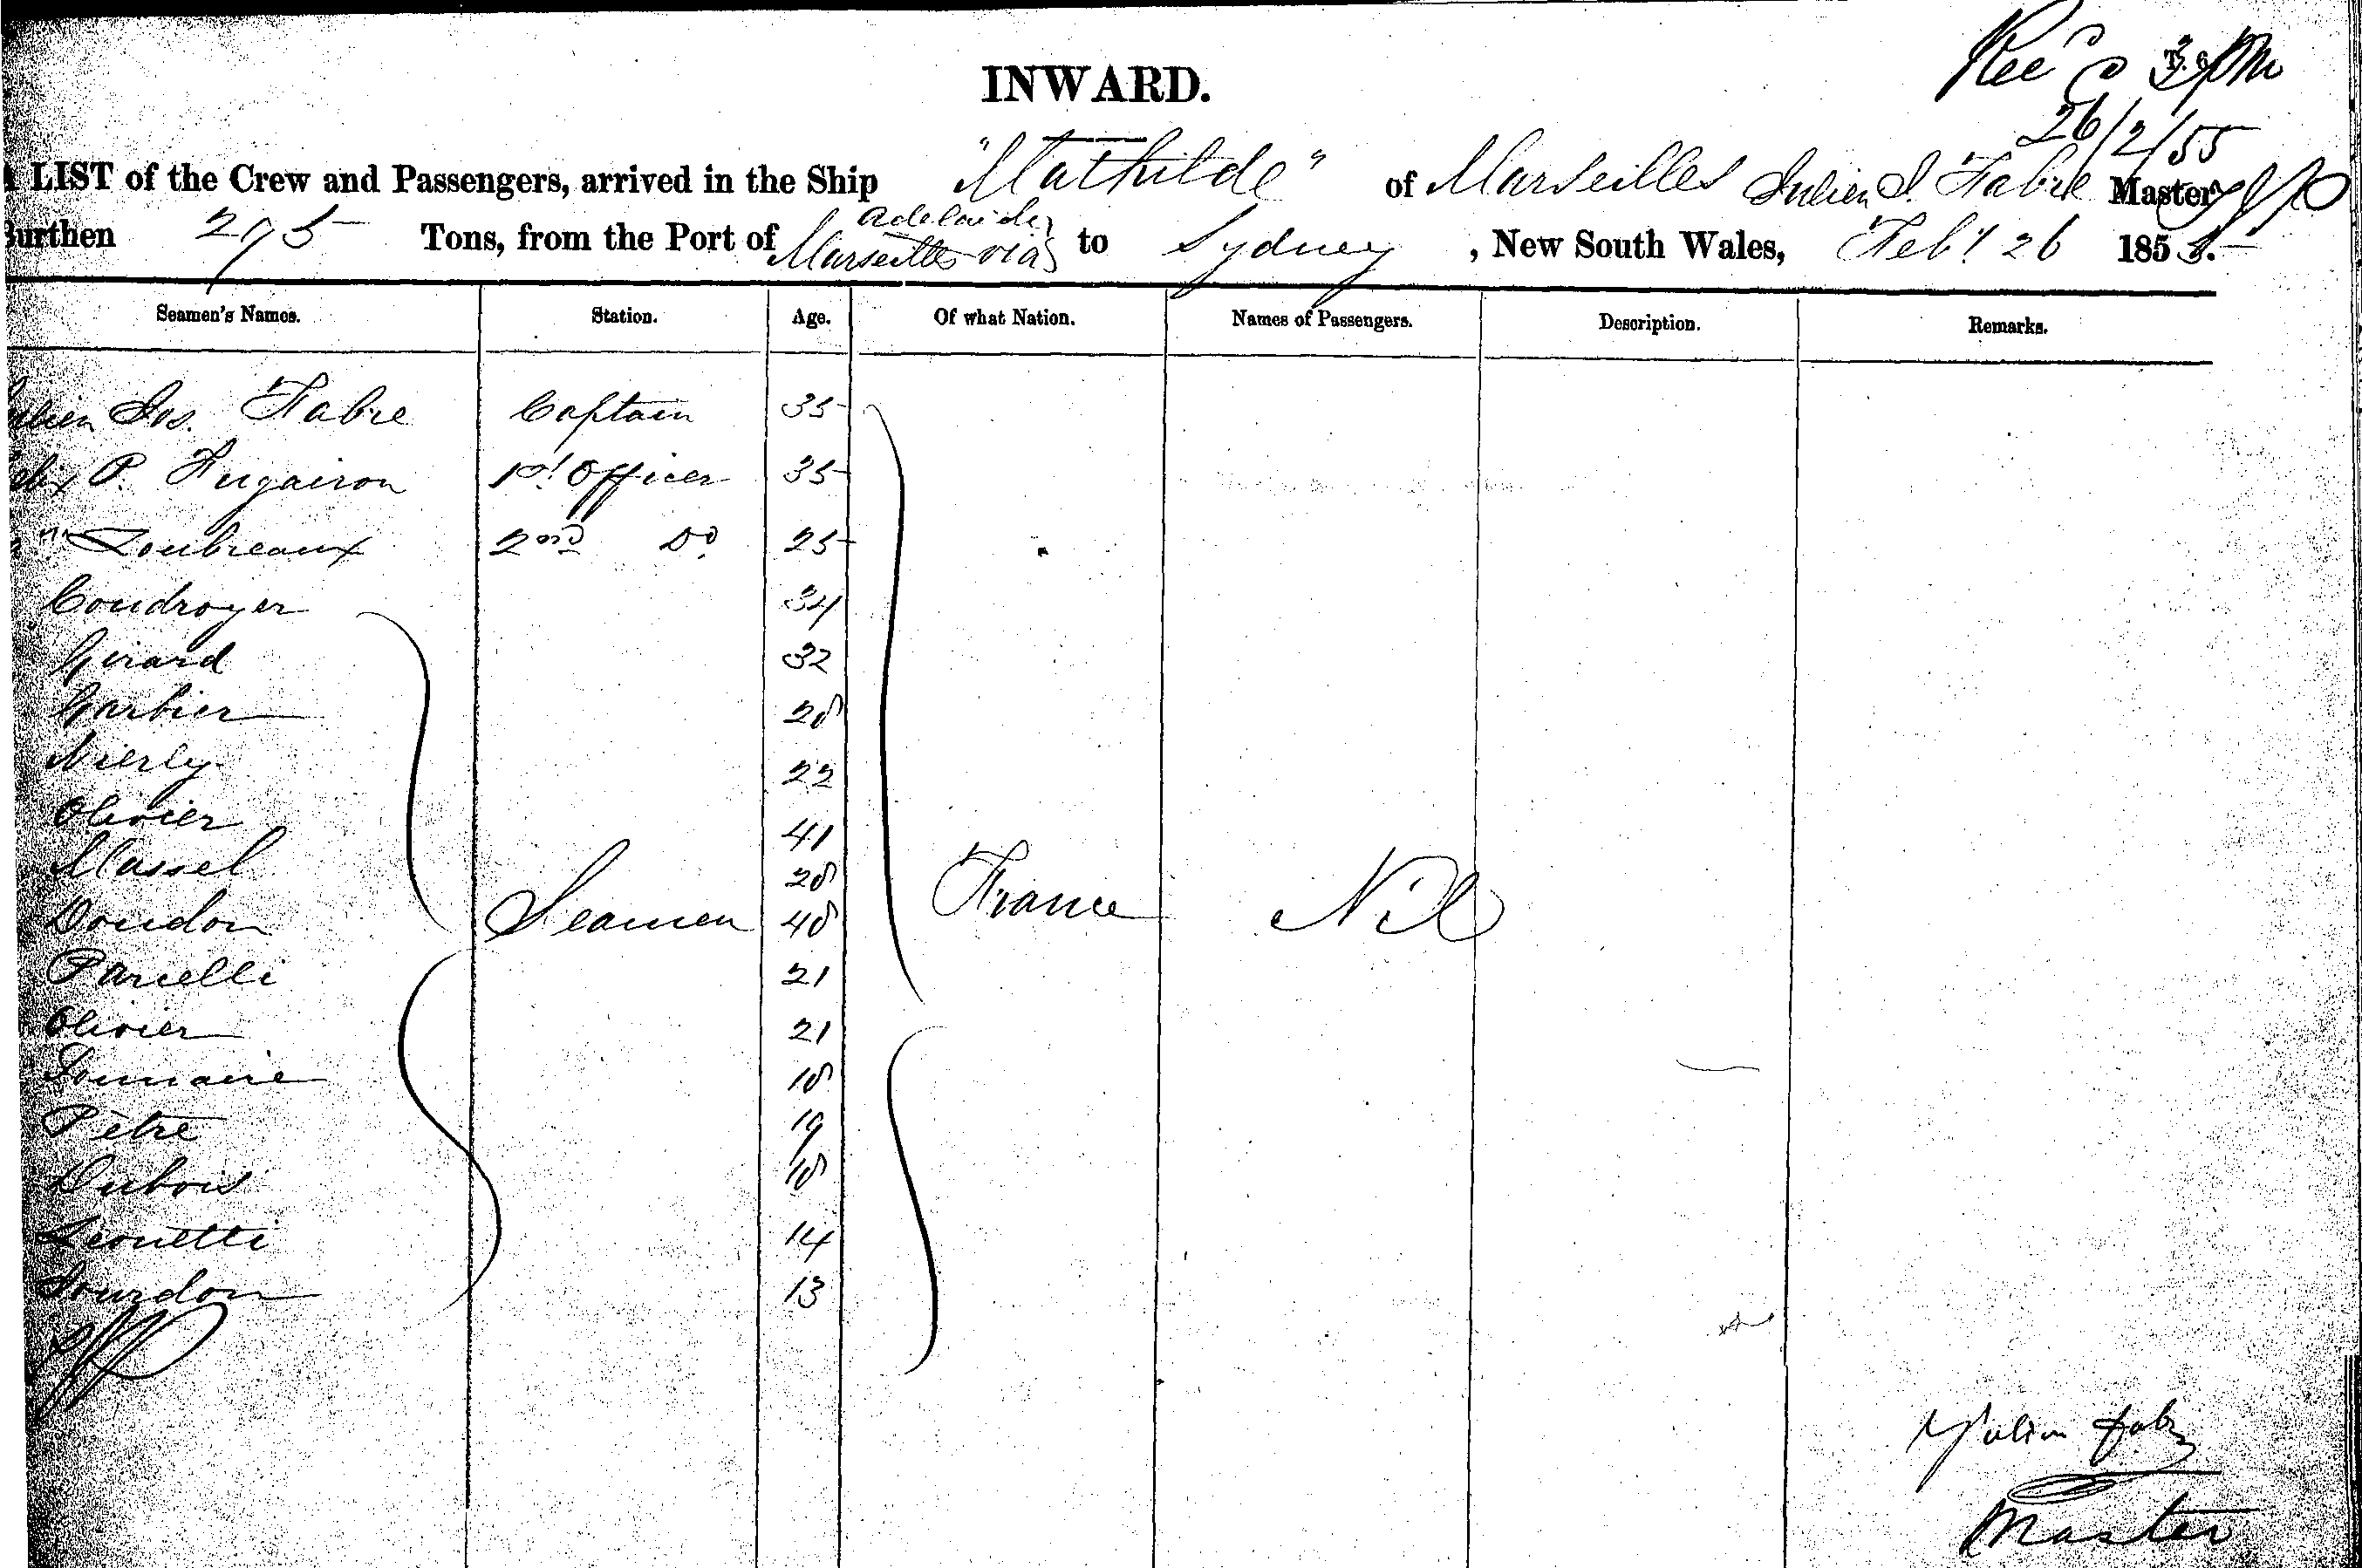 Rec'd 3 pm
26/2/55
INWARD.
LIST of the Crew and Passengers, arrived in the Ship "Mathilde" of Marseilles Julien J. Fabre Master
Burthen 295 Tons, from the Port of Marseilles via Adelaide to Sydney, New South Wales, Feby 26 1855.
Seamen's Names. Station. Age. Of what Nation. Names of Passengers. Description. Remarks.
Julien Jos. Fabre Captain 35
P. Fugairon 1st Officer 35
Loubreaux 2nd Do 25
Coudroyer 34
Girard 32
Garbier 28
Nierly 22
Olivier 41
Massel 28
Doudon Seamen 48 France Nil
Parcelli 21
Olivier 21
18
Petre 19
Dubois 18
Leonetti 14
Jourdon 13
Julien Fabre
Master